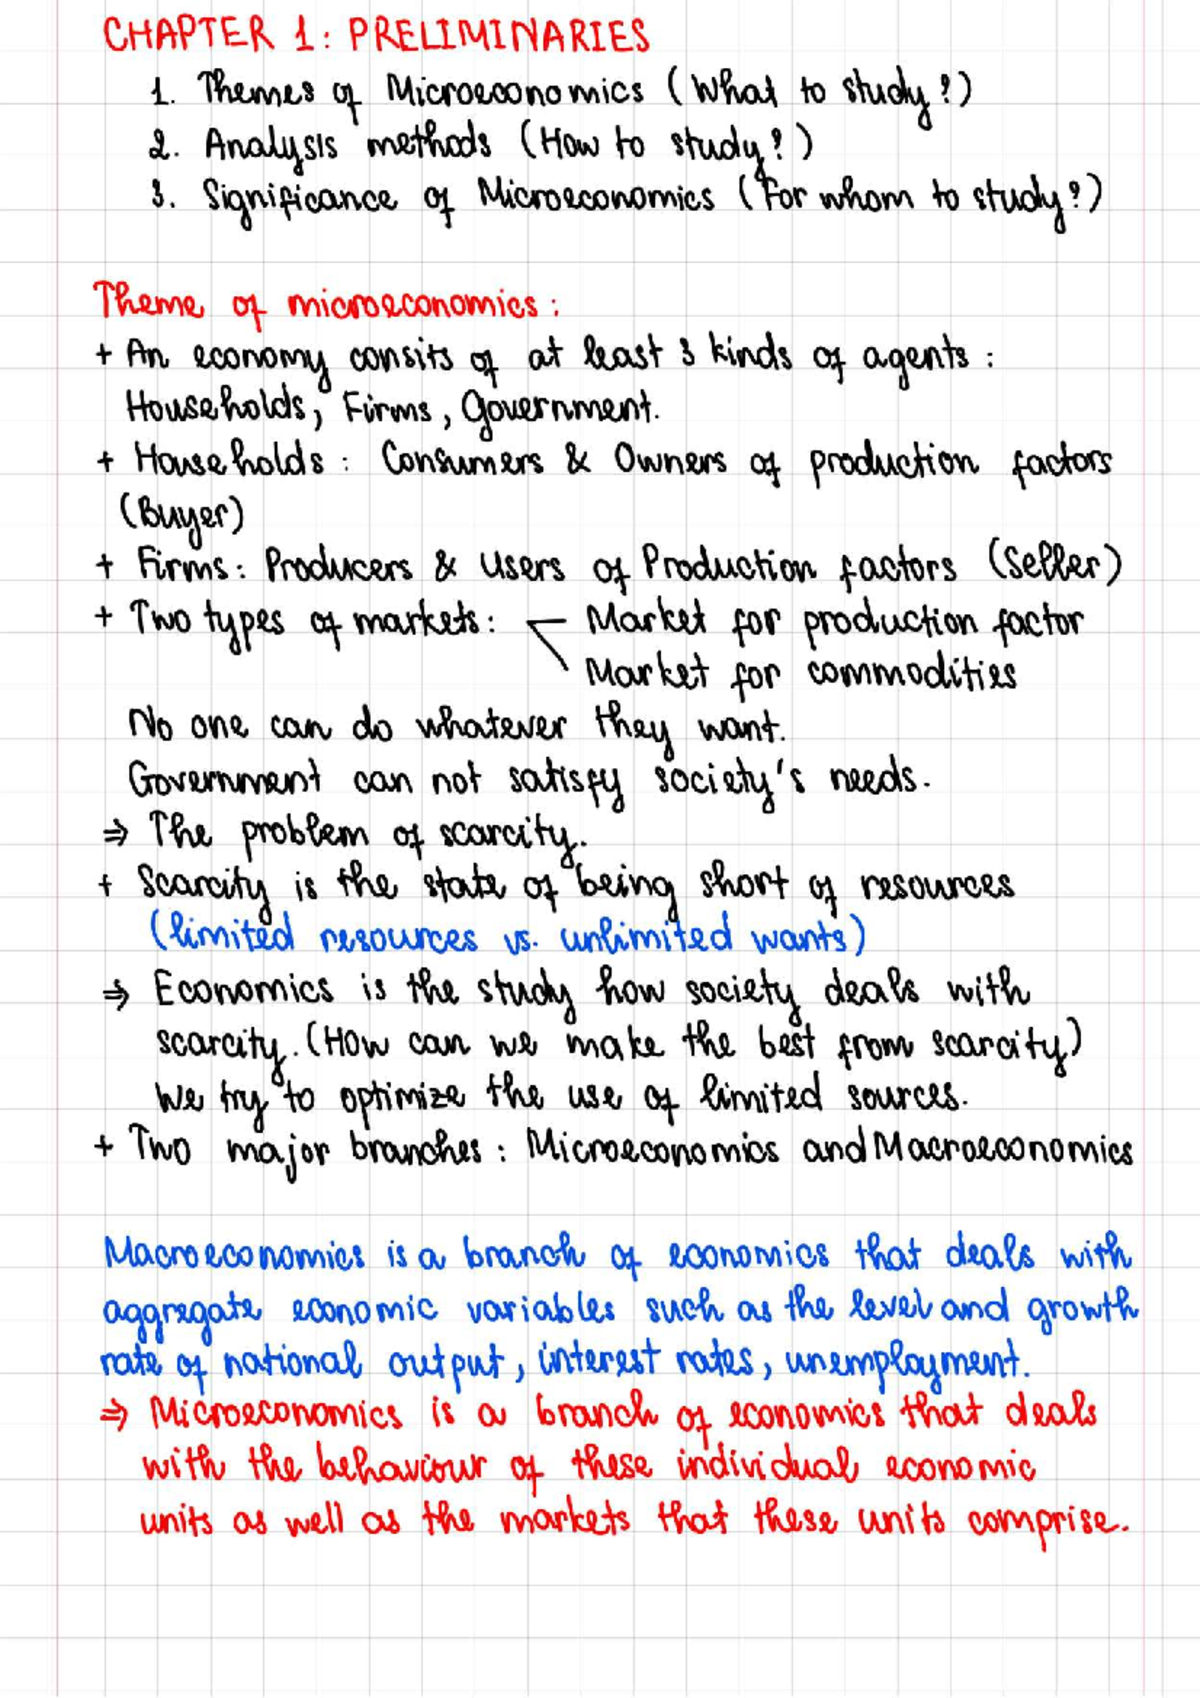 CHAPTER 1: PRELIMINARIES
1. Themes of Microeconomics (What to study?)
2. Analysis methods (How to study?)
3. Significance of Microeconomics (For whom to study?)
Theme of microeconomics:
+ An economy consits of at least 3 kinds of agents:
Households, Firms, Government.
+ Households: Consumers & Owners of production factors
(Buyer)
+ Firms: Producers & Users of Production factors (Seller)
+ Two types of markets: Market for production factor
Market for commodities
No one can do whatever they want.
Government can not satisfy society's needs.
⇒ The problem of scarcity.
+ Scarcity is the state of being short of resources
(limited resources vs. unlimited wants)
⇒ Economics is the study how society deals with
scarcity. (How can we make the best from scarcity)
We try to optimize the use of limited sources.
+ Two major branches: Microeconomics and Macroeconomics
Macroeconomics is a branch of economics that deals with
aggregate economic variables such as the level and growth
rate of national output, interest rates, unemployment.
⇒ Microeconomics is a branch of economics that deals
with the behaviour of these individual economic
units as well as the markets that these units comprise.